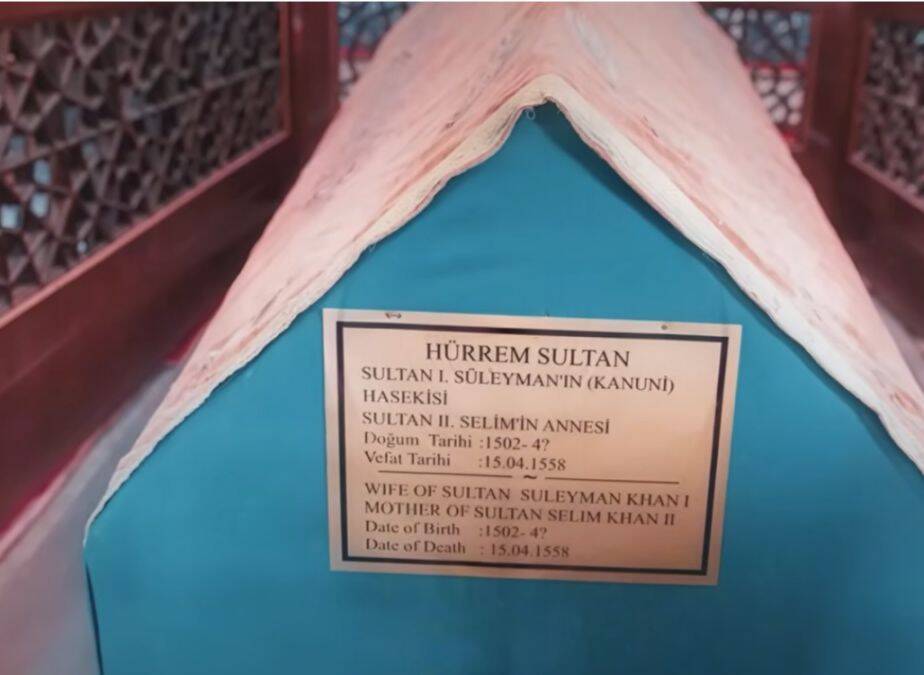 HÜRREM SULTAN
SULTAN I. SÜLEYMAN'IN (KANUNİ)
HASEKİSİ
SULTAN II. SELİM'İN ANNESİ
Doğum Tarihi :1502- 4?
Vefat Tarihi :15.04.1558
~
WIFE OF SULTAN SULEYMAN KHAN I
MOTHER OF SULTAN SELIM KHAN II
Date of Birth :1502- 4?
Date of Death : 15.04.1558